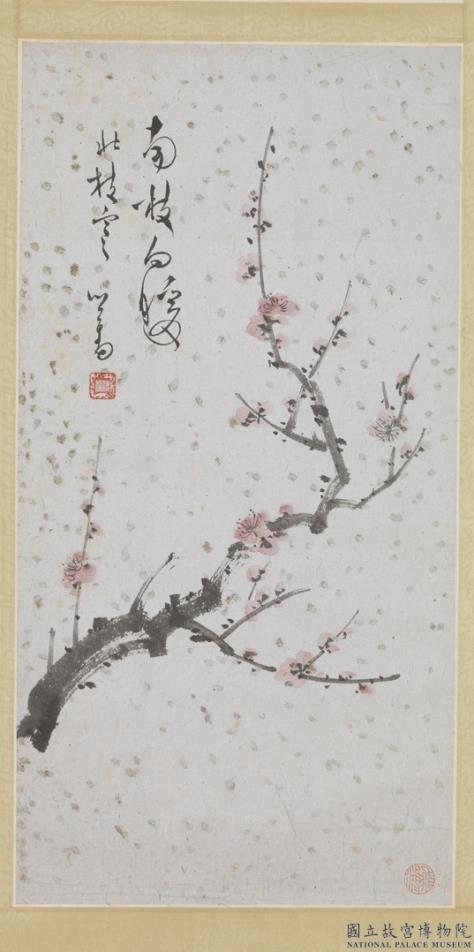 南枝向暖
北枝寒 心畬
國立故宮博物院
NATIONAL PALACE MUSEUM